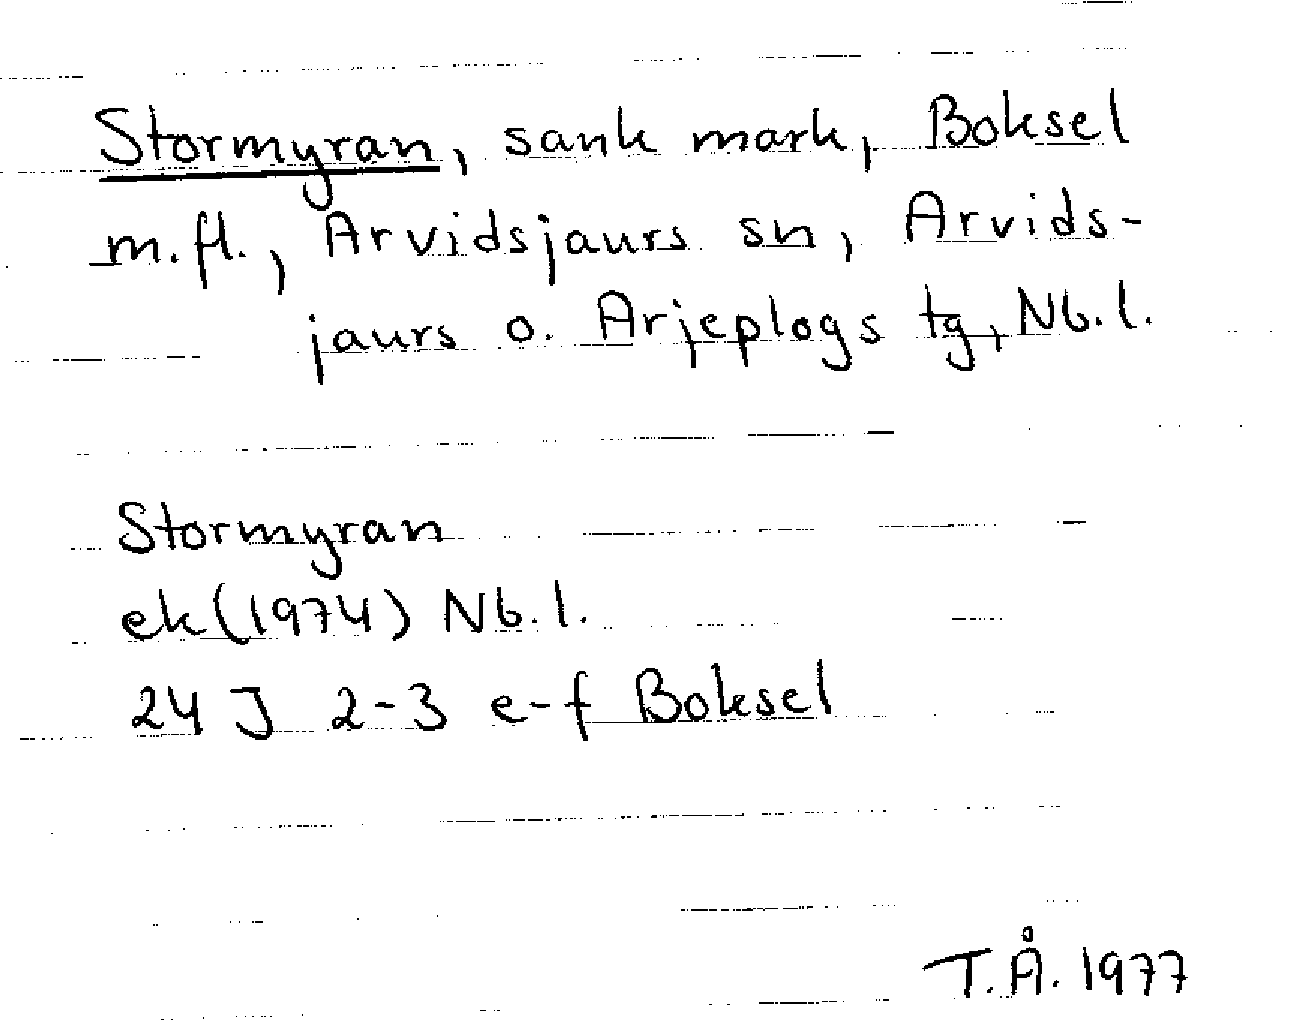 Stormyran, sank mark, Boksel
m.fl., Arvidsjaurs sn, Arvids-
jaurs o. Arjeplogs tg, Nb.l.
Stormyran
ek (1974) Nb.l.
24 J 2-3 e-f Boksel
T.Å. 1977